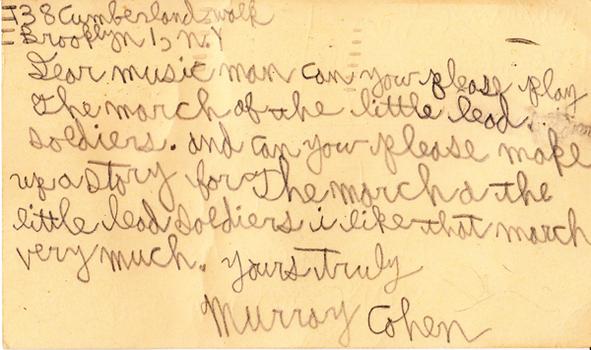 438 Cumberland walk
Brooklyn 1, N.Y
Dear music man can you please play
The march of the little lead
soldiers. and can you please make
up a story for The march of the
little lead soldiers i like that march
very much. yours truly
Murray Cohen